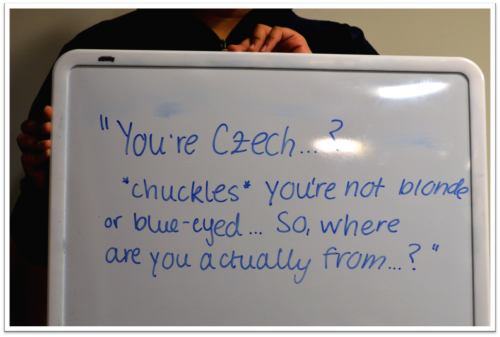 "You're Czech...?
*chuckles* you're not blonde
or blue-eyed... So, where
are you actually from...?"